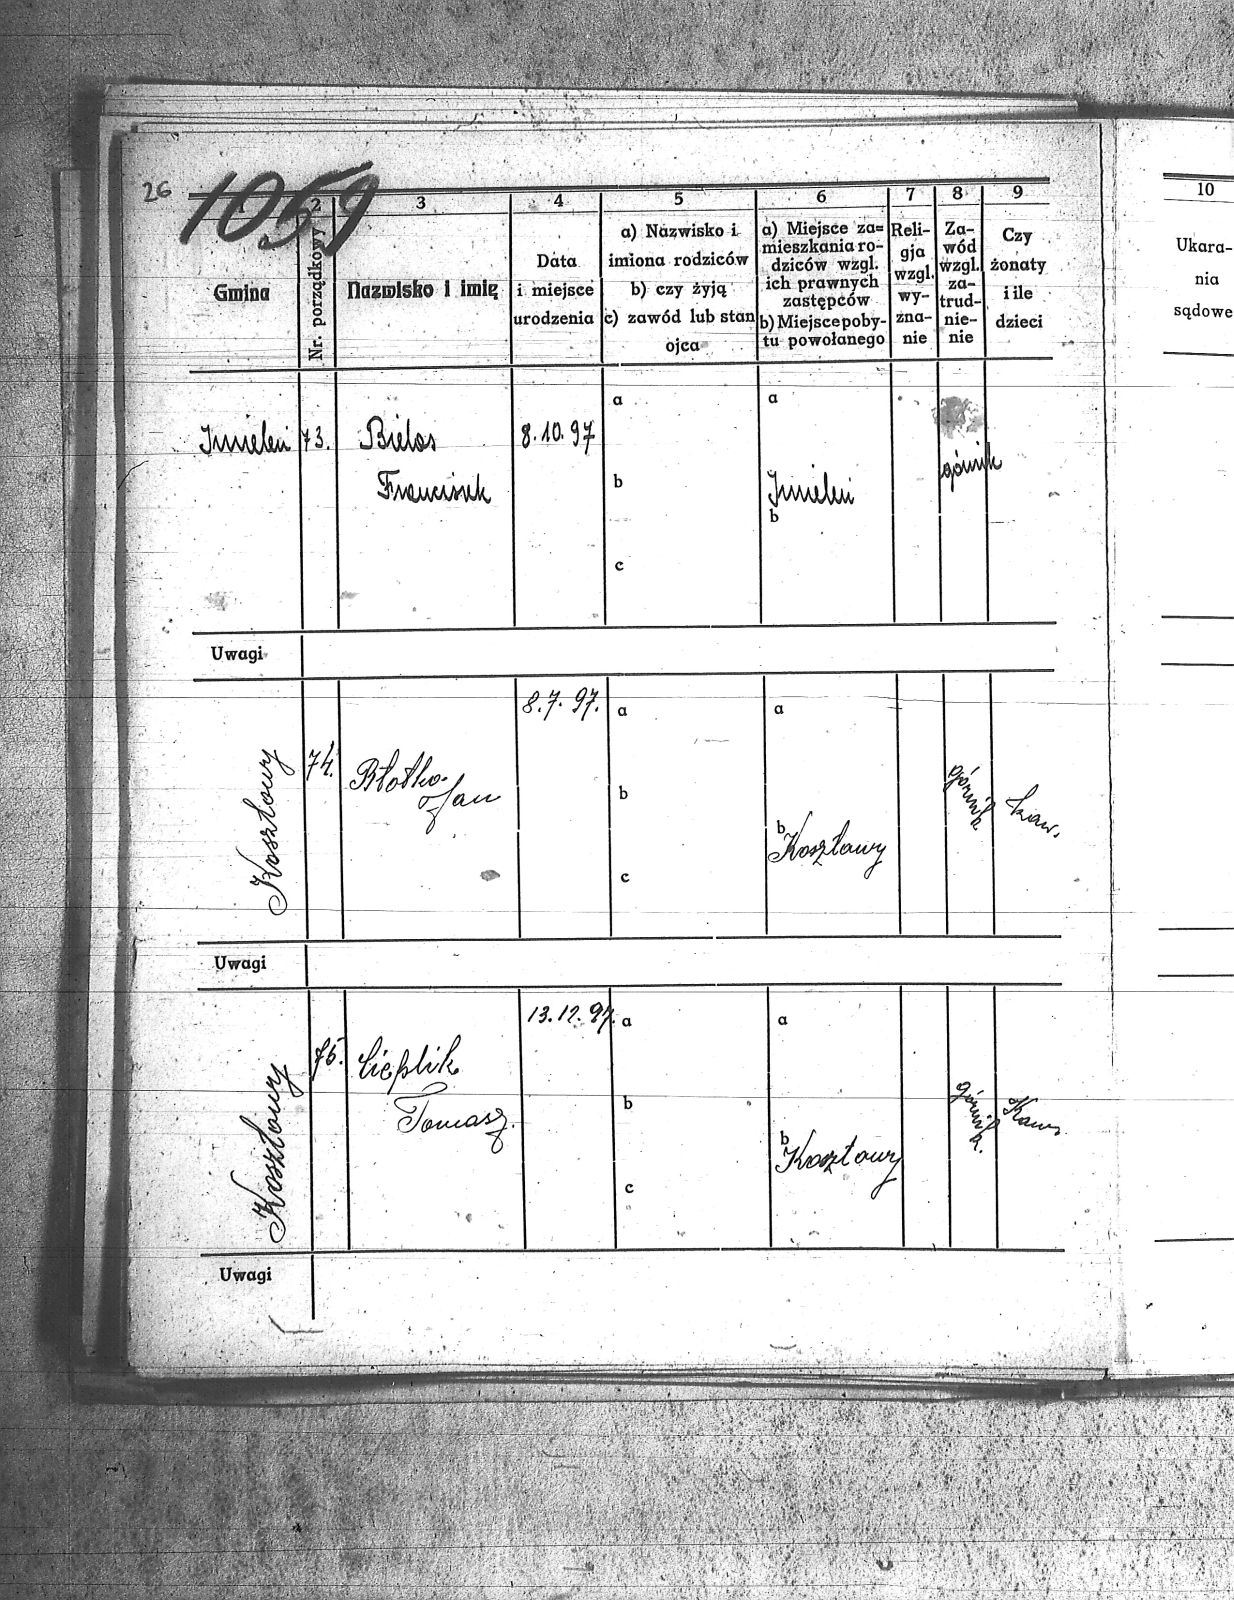 26
1059
2
3
4
5
6
7
8
9
10
Gmina
Nr. porządkowy
Nazwisko i imię
Data
i miejsce
urodzenia
a) Nazwisko i
imiona rodziców
b) czy żyją
c) zawód lub stan
ojca
a) Miejsce za=
mieszkania ro-
dziców wzgl.
ich prawnych
zastępców
b) Miejsce poby-
tu powołanego
Reli-
gja
wzgl.
wy-
zna-
nie
Za-
wód
wzgl.
za-
trud-
nie-
nie
Czy
żonaty
i ile
dzieci
Ukara-
nia
sądowe
Imieleń
73.
Bielas
Franciszek
8.10.97
a
b
c
a
Imieleń
b
górnik
Uwagi
Kosztowy
74.
Błotko
Jan
8.7.97.
a
b
c
a
b
Kosztowy
górnik
kaw.
Uwagi
Kosztowy
75.
Cieplik
Tomasz.
13.12.97.
a
b
c
a
b
Kosztowy
górnik.
Kaw.
Uwagi